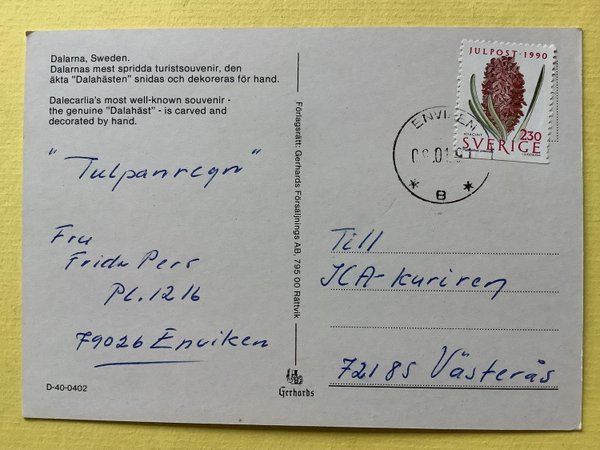 Dalarna, Sweden.
Dalarnas mest spridda turistsouvenir, den
äkta "Dalahästen" snidas och dekoreras för hand.
Dalecarlia's most well-known souvenir -
the genuine "Dalahäst" - is carved and
decorated by hand.
"Tulpanregn"
Fru
Frida Pers
Pl. 1216
79026 Enviken
D-40-0402
Förlagsrätt: Gerhards Försäljnings AB, 795 00 Rättvik
Gerhards
JULPOST · 1990
230
SVERIGE
ENVIKEN
08.01.91
* 8 *
Till
ICA-kuriren
72185 Västerås